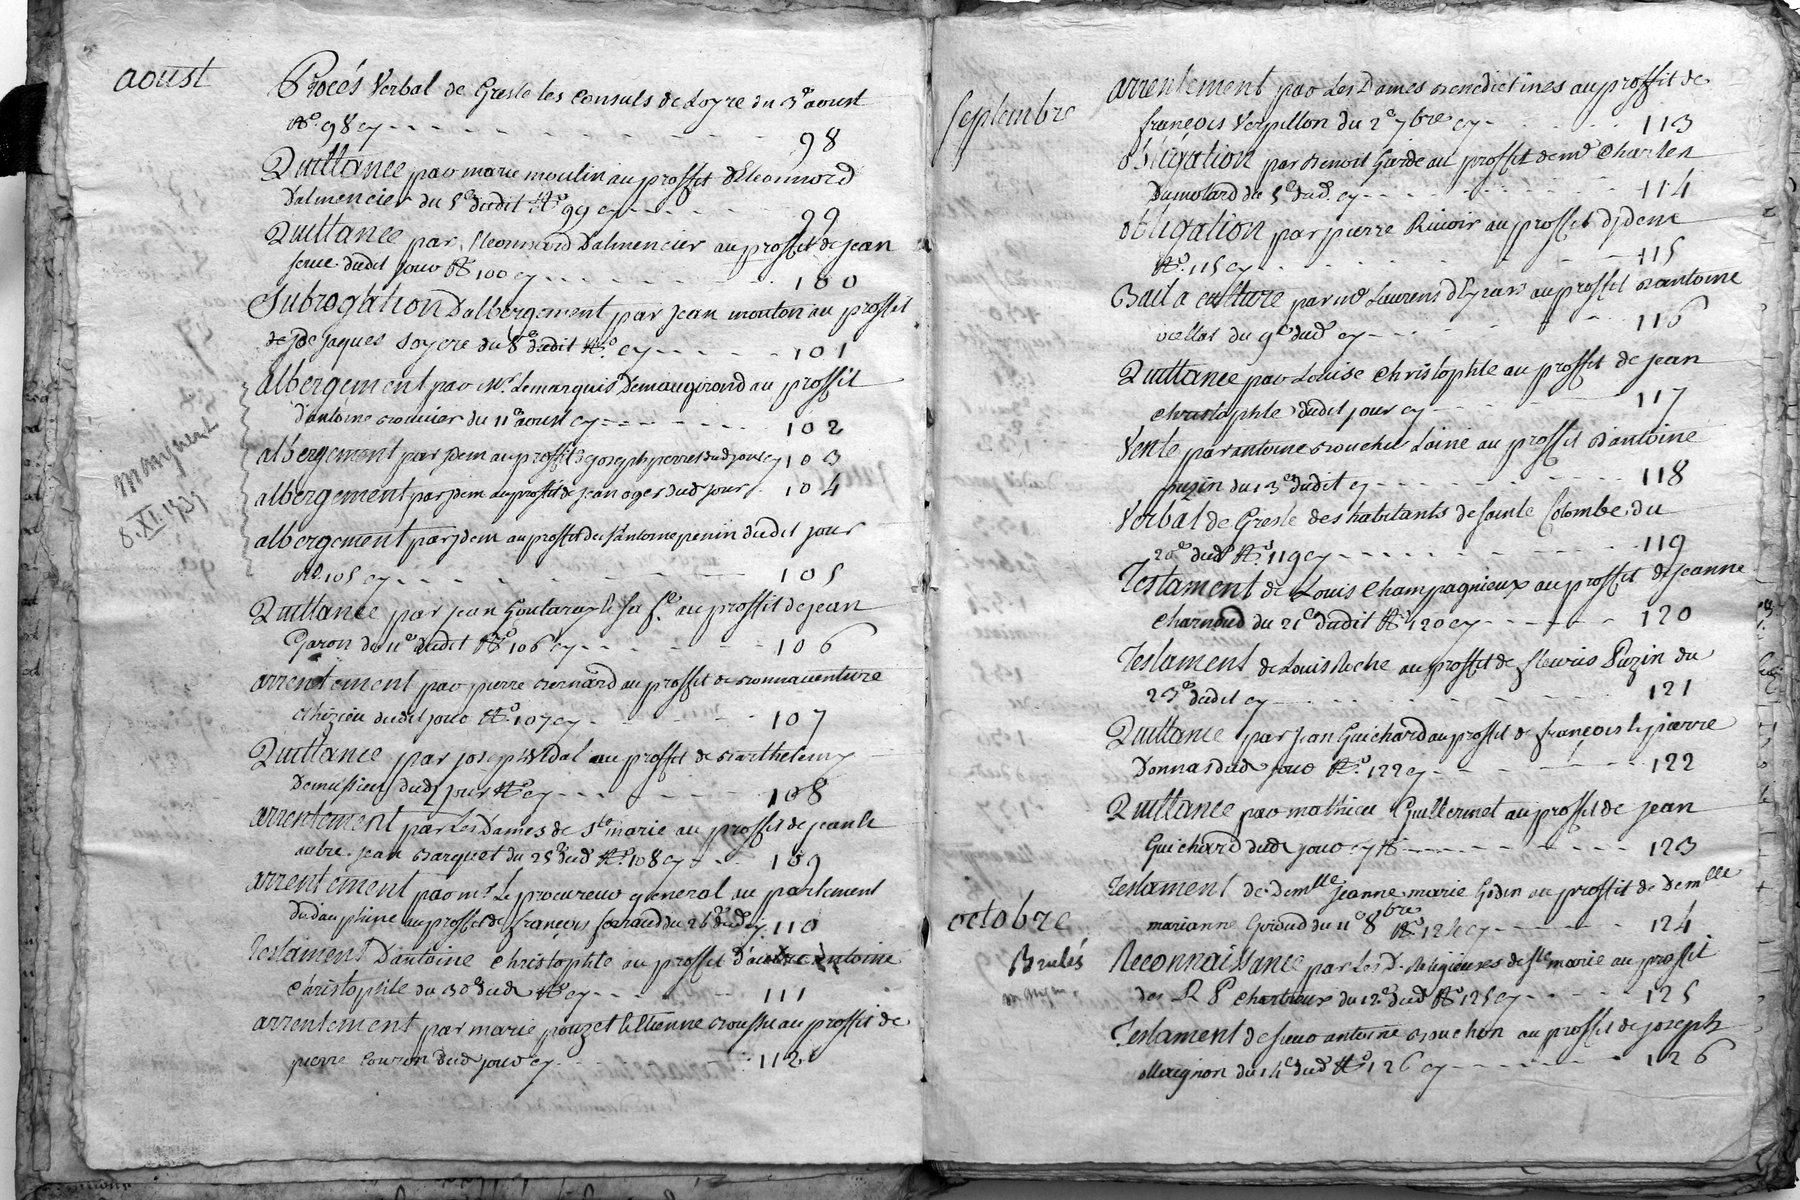 aoust
Procés Verbal de Gresle les Consuls de Loyre du 3e aoust
No. 98 cy
98
Quittance par marie moulin au proffit de Leonnord
Dalmencier du 5e dudit No 99 cy
99
Quittance par Leonnard Dalmencier au proffit de jean
dudit jour No 100 cy
100
Subrogation Dalbergement par jean mouton au proffit
de jaques Soyere du 8e dudit No cy
101
albergement par Mr. Lemarquis Demaugirond au proffit
d'antoine du 11e aoust cy
102
albergement par jdem au proffit de joseph perret dud jour cy 103
albergement par jdem au proffit de jean oger dud jour 104
albergement par jdem au proffit de antoine penin dudit jour
No. 105 cy
105
manquent
8.XI.1935
Quittance par jean au proffit de jean
Garon du 11e dudit No 106 cy
106
arrentement par pierre Bernard au proffit de Bonnaventure
dudit jour No. 107 cy
107
Quittance par joseph Vidal au proffit de Barthelemy
dud jour No cy
108
arrentement par Les Dames de Ste marie au proffit de jean le
aubre. jean Barquet du 25e dud No. 108 cy
109
arrentement par mr. Le procureur general au parlement
du dauphine au proffit de françois ferraud du 26e dud cy 110
Testament D'antoine Christophle au proffit d'autre antoine
Christophle du 30e dud No cy
111
arrentement par marie pouzet au proffit de
pierre Couron dud jour cy
112
Septembre
arrentement par Les Dames Benedictines au proffit de
françois Verpillon du 2e 7bre cy
113
obligation par Benoit Garde au proffit de mr Charles
Dumolard du 5e dud. cy
114
obligation par pierre Rivoir au proffit djdem
No. 115 cy
115
Bail a culture par mr Laurens au proffit D'antoine
du 9e dud cy
116
Quittance par Louise Christophle au proffit de jean
Christophle dudit jour cy
117
Vente par antoine Bouchet Lainé au proffit D'antoine
puzin du 13e dudit cy
118
Verbal de Gresle des habitants de Sainte Colombe du
20e dud No 119 cy
119
Testament de Louis Champagnieux au proffit de jeanne
Charnoud du 21e dudit No 120 cy
120
Testament de Louis Roche au proffit de fleuris Puzin du
23e dudit cy
121
Quittance par jean Guichard au proffit de françois le pierre
Donnas dud jour No. 122 cy
122
Quittance par mathieu Guillermet au proffit de jean
Guichard dud jour cy No
123
Testament de Demlle jeanne marie Godin au proffit de demlle
octobre
marianne Giroud du 11e 8bre No. 124 cy
124
Brulés
Reconnaissance par Les Ds Religieuses de Ste marie au proffit
des R P Chartreux du 12e dud No 125 cy
125
Testament de sieur antoine Bouchon au proffit de joseph
Maignon du 14e dud No 126 cy
126